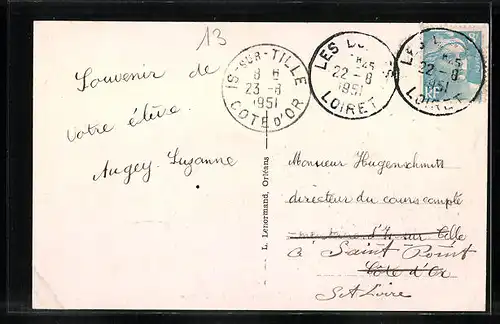 13
Souvenir de
votre élève.
Augey Suzanne
IS-SUR-TILLE
8 H
23-8
1951
COTE D'OR
LES
1845
22-8
1951
LOIRET
LES
1845
22-8
1951
LOIRET
L. Lenormand, Orléans
Monsieur Hugenschmitt
directeur du cours complé
d'Is sur Tille
à Saint Point
Côte d'Or
S.et Loire